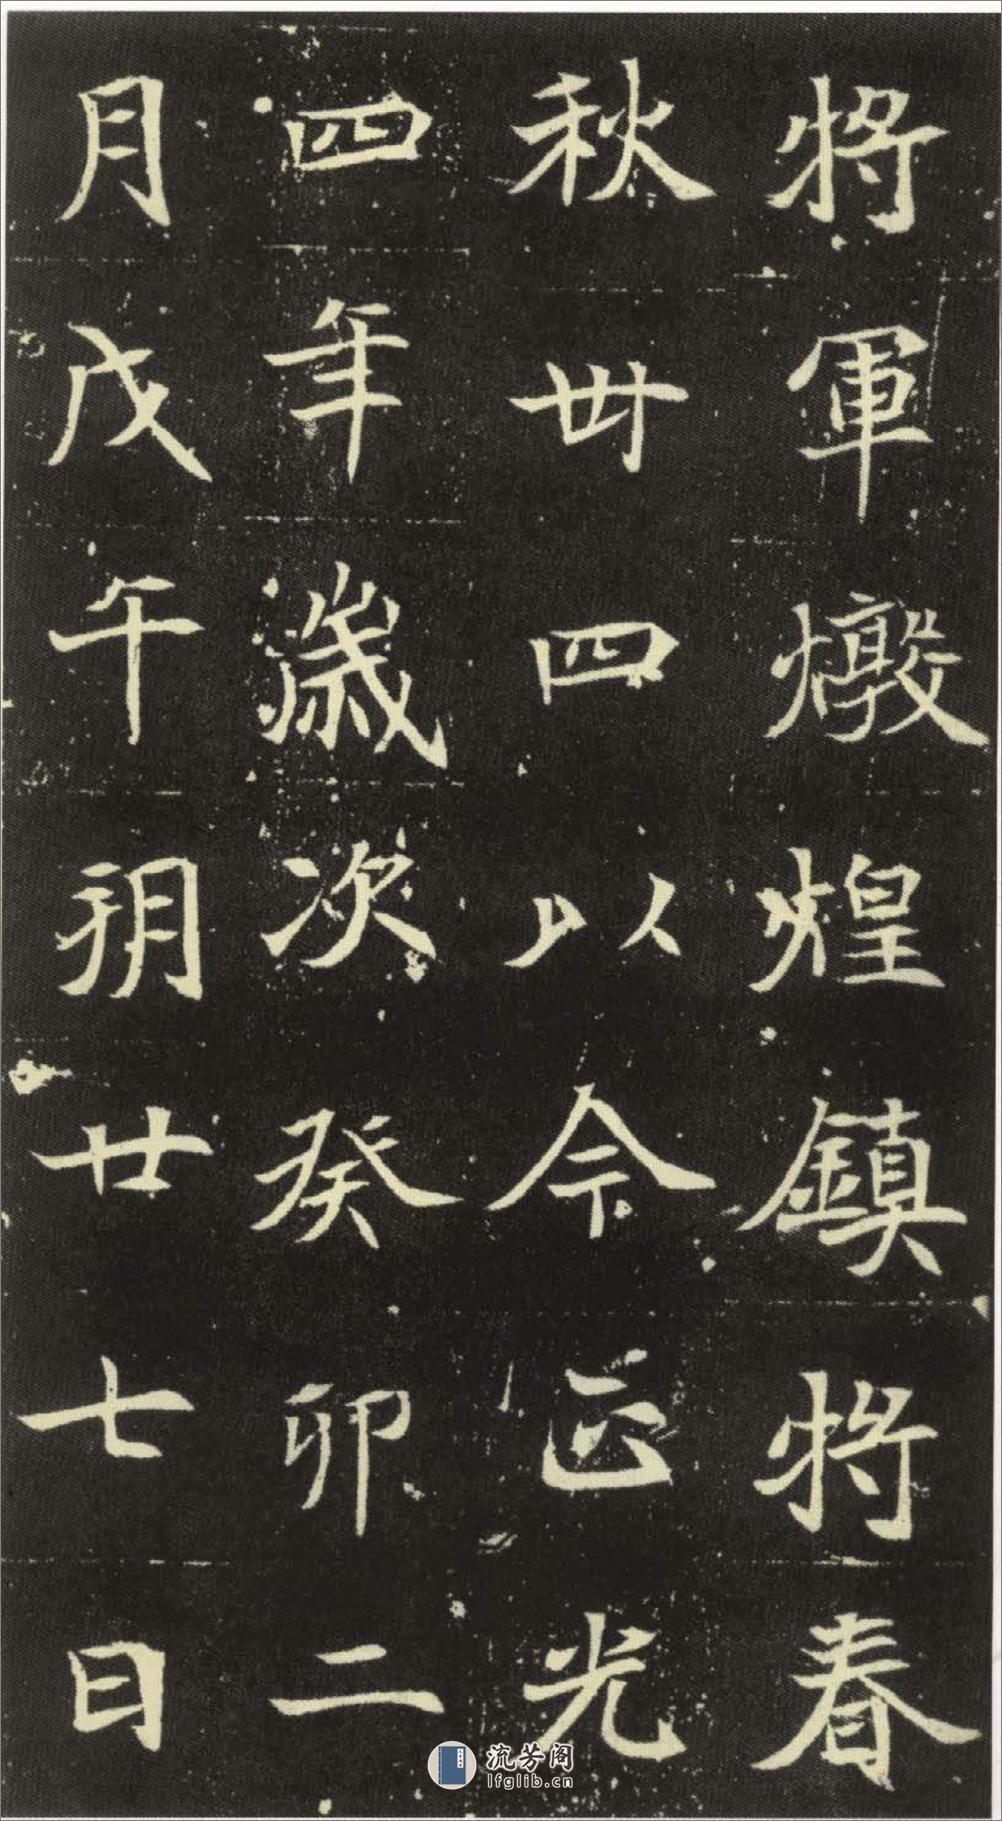 將軍燉煌鎮將春
秋卌四以今正光
四年歲次癸卯二
月戊午朔廿七日
流芳阁
lfglib.cn